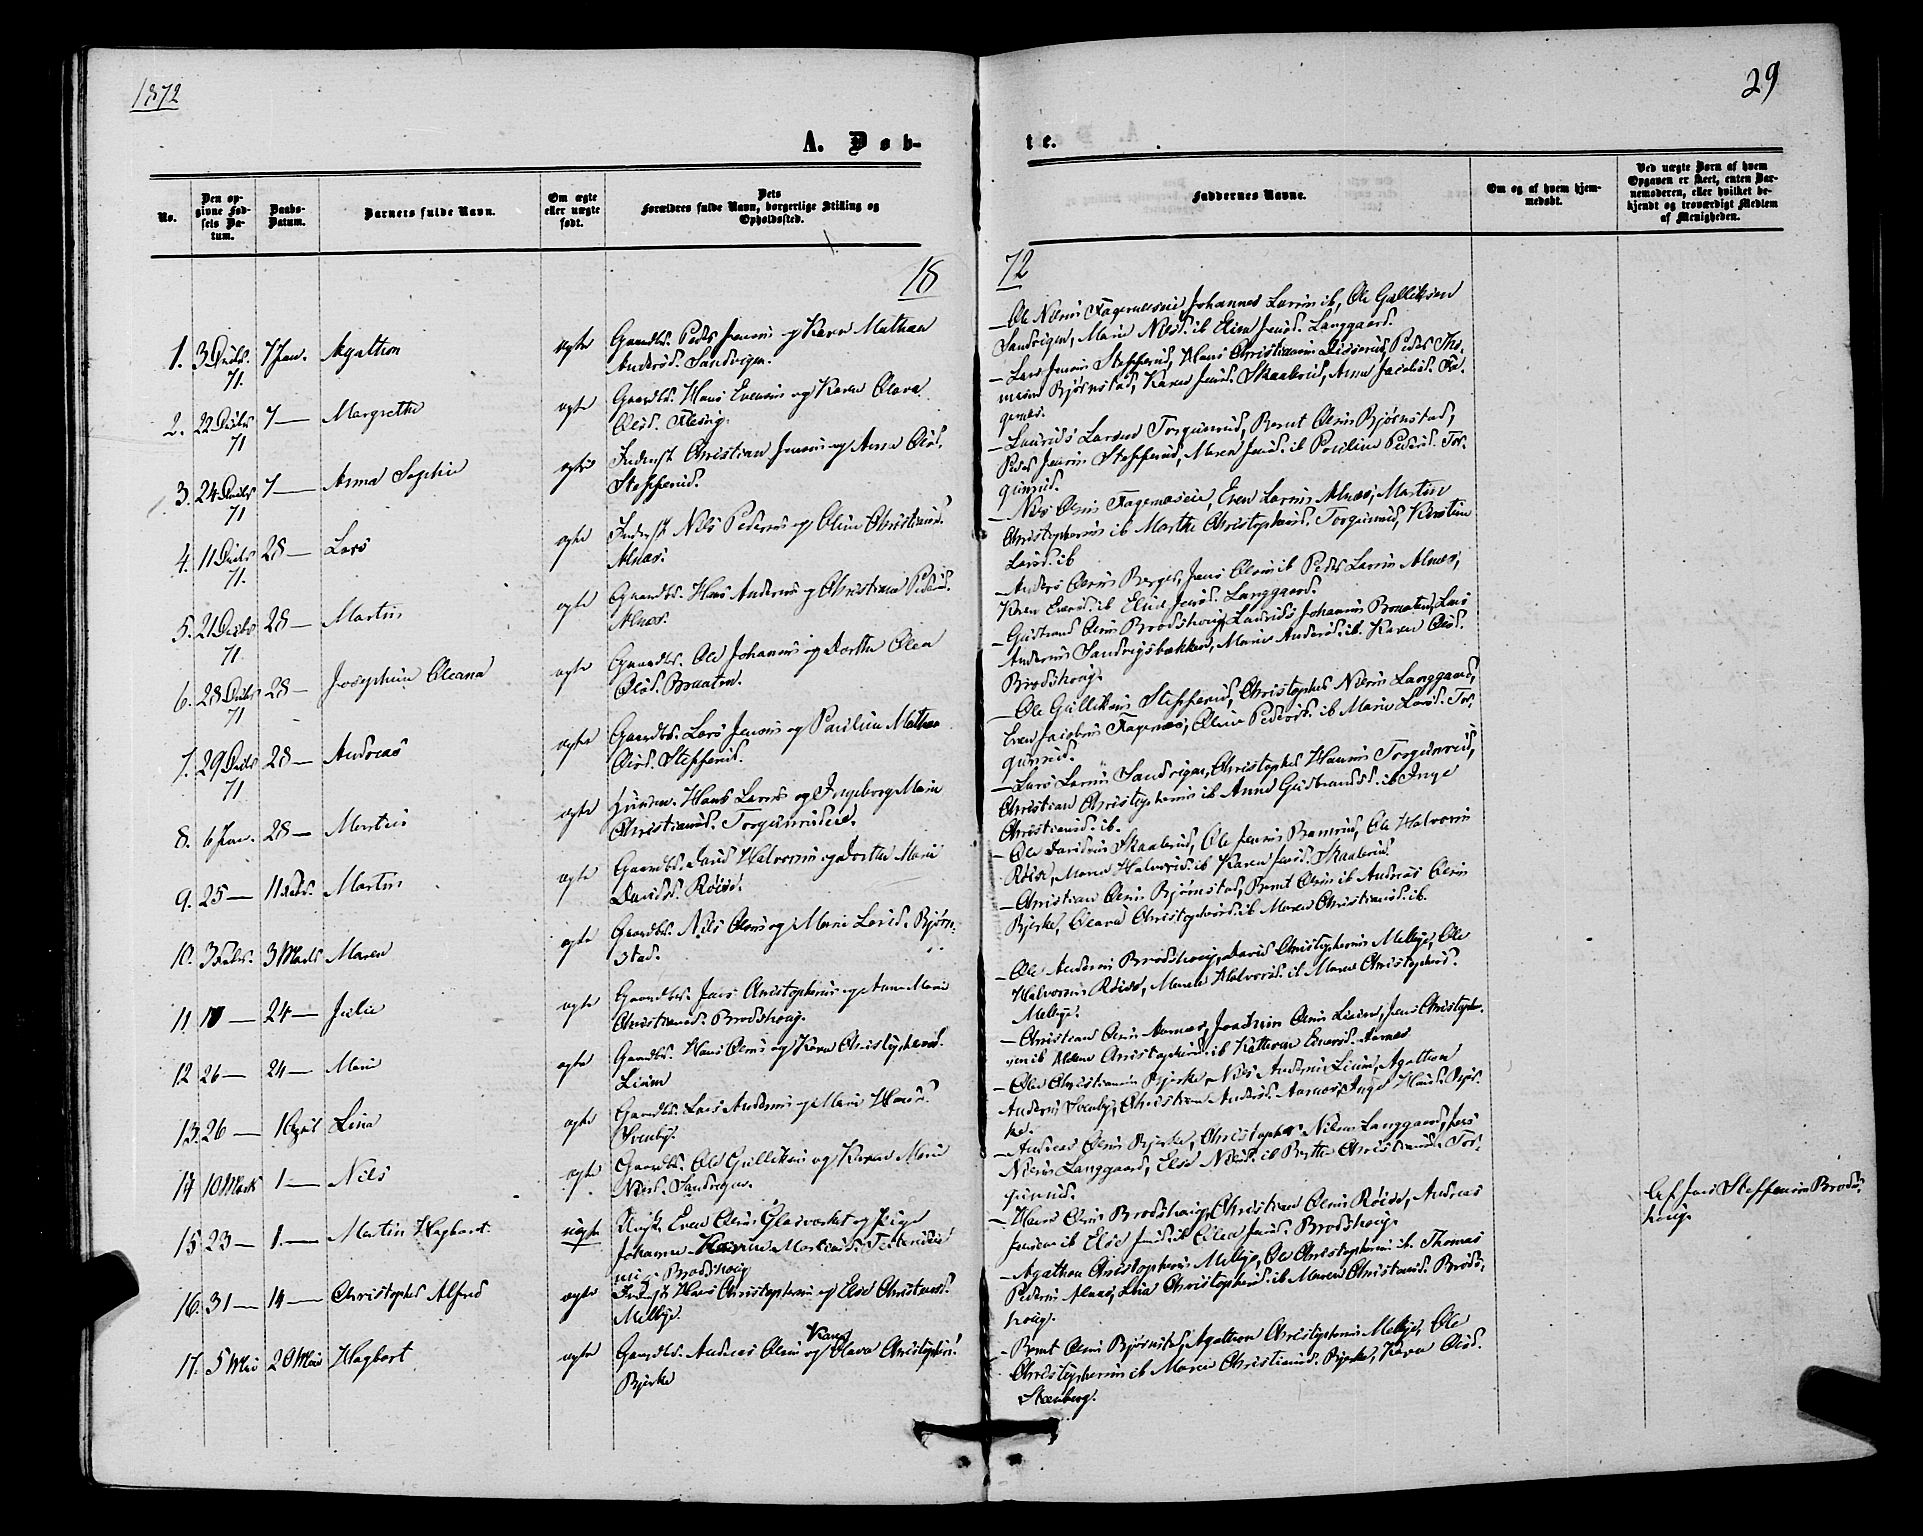 1872
29
A. Døb-
te.
No.
Den op-
givne Fød-
sels Da-
tum.
Daabs-
Datum.
Barnets fulde Navn.
Om ægte
eller uægte
født.
Dets
Forældres fulde Navn, borgerlige Stilling og
Opholdssted.
Faddernes Navne.
Om og af hvem hjem-
medøbt.
Ved uægte Børn af hvem
Opgaven er skeet, enten Bar-
nemoderen, eller hvilket be-
kjendt og troværdigt Medlem
af Menigheden.
18
72
1. 3 Decbr. 71. 7 Jan. Agathon ægte Gaardbr. Peder Jensen og Karen Mathea
Andersd. Sandvigen.
– Ole Nielsen Fagernæseie, Johannes Larsen ib, Ole Gulliksen
Sandvigen, Marie Nilsd. ib Eline Jensd. Langgaard.
2. 22 Decbr 71 7 — Margrethe ægte Gaardbr. Hans Evensen og Karen Olava
Olsd.
– Lars Jensen Stefferud, Hans Christiansen Peder Tho-
mesen Bjørnstad, Karen Jensd. Skaalerud, Anne Jacobsd. Fa-
gernæs.
3. 24 Decbr 71 7 — Anna Sophie ægte Inderst Christian Jensen og Anne Olsd.
Stefferud.
– Laurids Larsen Torgunrud, Bernt Olsen Bjørnstad,
Peder Jensen Stefferud, Maren Jensd. ib Pauline Pedersd. Tor-
gunrud.
4. 11 Decbr 71. 28 — Lars ægte Inderst Nils Pedersen og Oline Christiansd.
Alnæs.
– Nils Olsen Fagernæseie, Even Larsen Alnæs, Martin
Christophersen ib Marthe Christophersd. Torgunrud, Kirstine
Larsd. ib
5. 21 Decbr 71. 28 — Martin ægte Gaardbr. Hans Andersen og Christiane Pedersd.
Alnæs.
– Anders Olsen Berger, Jens Olsen ib Peder Larsen Alnæs,
Karen Evensd. ib Elise Jensd. Langgaard.
6. 28 Decbr 71 28 — Josephine Oleana ægte Gaardbr. Ole Johansen og Dorthe Olea
Olsd. Braaten.
– Gudbrand Olsen Brodshoug, Laurids Johansen Braaten, Lars
Andersen Sandvigsbakken, Marie Andersd. ib. Karen Olsd.
Brodshoug.
7. 29 Decbr 71 28 — Andreas ægte Gaardbr. Lars Jensen og Pauline Mathea
Olsd. Stefferud.
– Ole Gulliksen Stefferud, Christopher Nielsen Langgaard,
Even Jacobsen Fagernæs, Oline Pedersd. ib Marie Larsd. Tor-
gunrud.
8. 6 Jan. 28 — Martin ægte Hans Larsen og Ingeborg Marie
Christiansd. Torgunrudeie.
– Lars Larsen Sandvigen, Christopher Hansen Torgunrud,
Christian Christophersen ib Anne Gudbrandsd. ib Inge
Christiansd. ib.
9. 25 — 11 Febr. Martin ægte Gaardbr. David Halvorsen og Dorthe Marie
Davidsd. Röise.
– Ole Davidsen Skaalerud, Ole Jensen Bamrud, Ole Halvorsen
Röise, Maren Halvorsd. ib Karen Jensd. Skaalerud.
10. 3 Febr. 3 Marts Maren ægte Gaardbr. Nils Olsen og Marie Larsd. Bjørn-
stad.
– Christian Olsen Bjørnstad, Bernt Olsen ib Andreas Olsen
Bjerke, Oleava Christophersd. ib Maren Christiansd. ib.
11 11 — 24 — Julie ægte Gaardbr. Jens Christophersen og Anne Marie
Christiansd. Brodshoug.
– Ole Andersen Brodshoug, David Christophersen Melbye, Ole
Halvorsen Röise, Maren Halvorsd. ib Maren Christophersd.
Melbye.
12 26 — 24 — Marie ægte Gaardbr. Hans Olsen og Karen Christophersd.
Linne
– Christian Olsen Aarnæs, Joachim Olsen Linne, Jens Christopher-
sen ib Maren Christophersd. ib Kathrine Einersd. Aarnæs
13. 26 — 1 April Lina ægte Gaardbr. Lars Andersen og Marie Hansd.
Svenby.
– Ole Christiansen Bjerke, Nils Andersen Linne, Agathon
Andersen Svenby, Christian Andersd. Aarnæs, Inge Hansd. Bjer-
ke.
14 10 Marts 1 — Nils ægte Gaardbr. Ole Gulliksen og Karen Marie
Nilsd. Sandvigen.
– Andreas Olsen Bjerke, Christopher Nielsen Langgaard, Lars
Nielsen Langgaard, Else Nilsd. ib Berthe Christiansd. Tor-
gunrud.
15 23 — 1. — Martin Hagbart. uægte Ungk. Even Olsen Glasværket og Pige
Johanne Karine Martinsd.
Brodshoug
– Hans Olsen Brodshoug, Christian Olsen Röise, Andreas
Jensen ib Else Jensd. ib Olea Jensd. Brodshoug.
Af Jens Steffensen Brods-
houg.
16. 31 — 14 — Christopher Alfred ægte Inderst Hans Christophersen og Else Christiansd.
Melbye.
– Agathon Christophersen Melbye, Ole Christophersen ib. Thomas
Pedersen Alnæs, Lina Christophersd. ib Maren Christiansd. Brods-
houg.
17. 5 Mai 20 Mai Hagbart ægte Gaardbr. Andreas Olsen og Karen Olava Christophersd.
Bjerke
– Bernt Olsen Bjørnstad, Agathon Christophersen Melbye, Ole
Christophersen ib Maren Christiansd. Bjerke, Karen Olsd.
Steenberg.